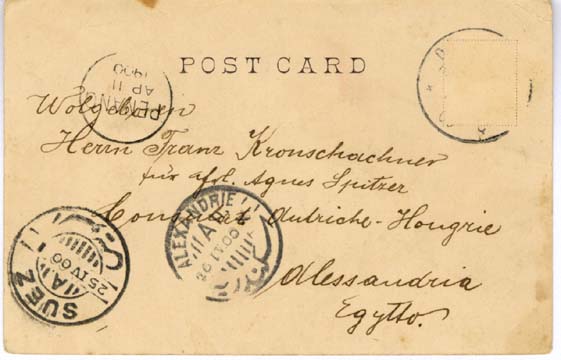 POST CARD
PENANG
AP 11
1900
Wolgeboren
Herrn Franz Kronschachner
für afrl. Agnes Spitzer
Consulat Autriche-Hongrie
Alessandria
Egytto.
ALEXANDRIE
26 IV 00
SUEZ
25 IV 00